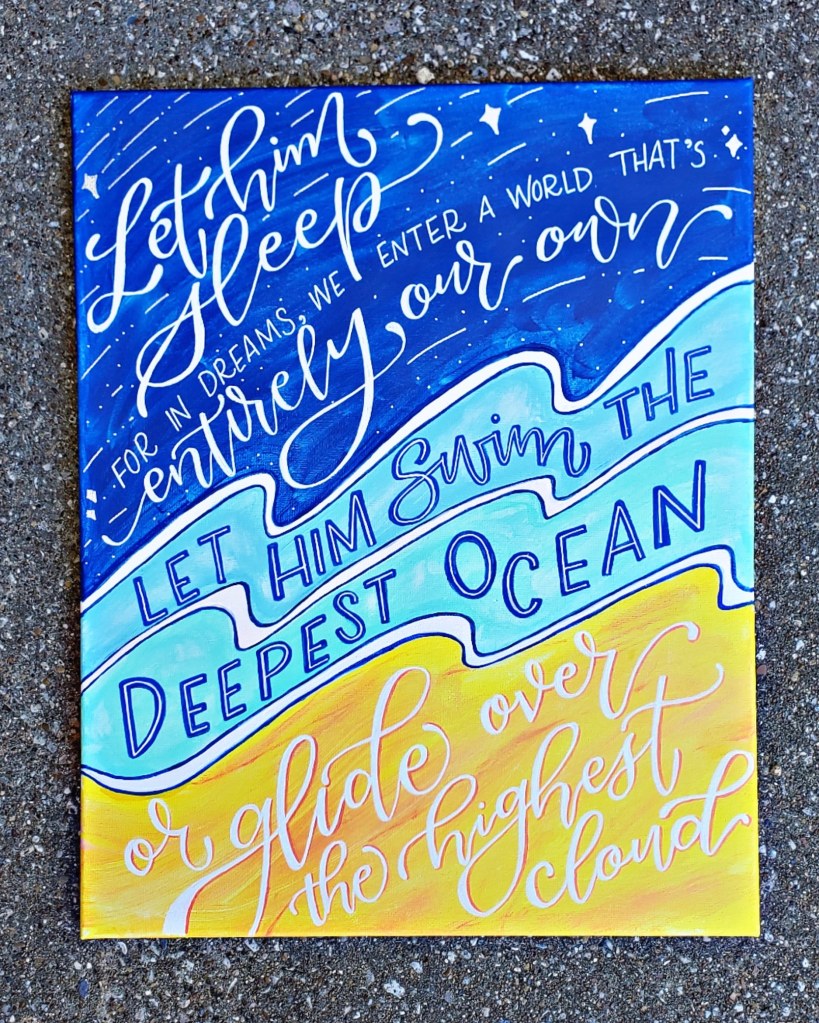 Let him
sleep
FOR IN DREAMS, WE ENTER A WORLD THAT'S
entirely our own
LET HIM Swim THE
DEEPEST OCEAN
or glide over
the highest
cloud